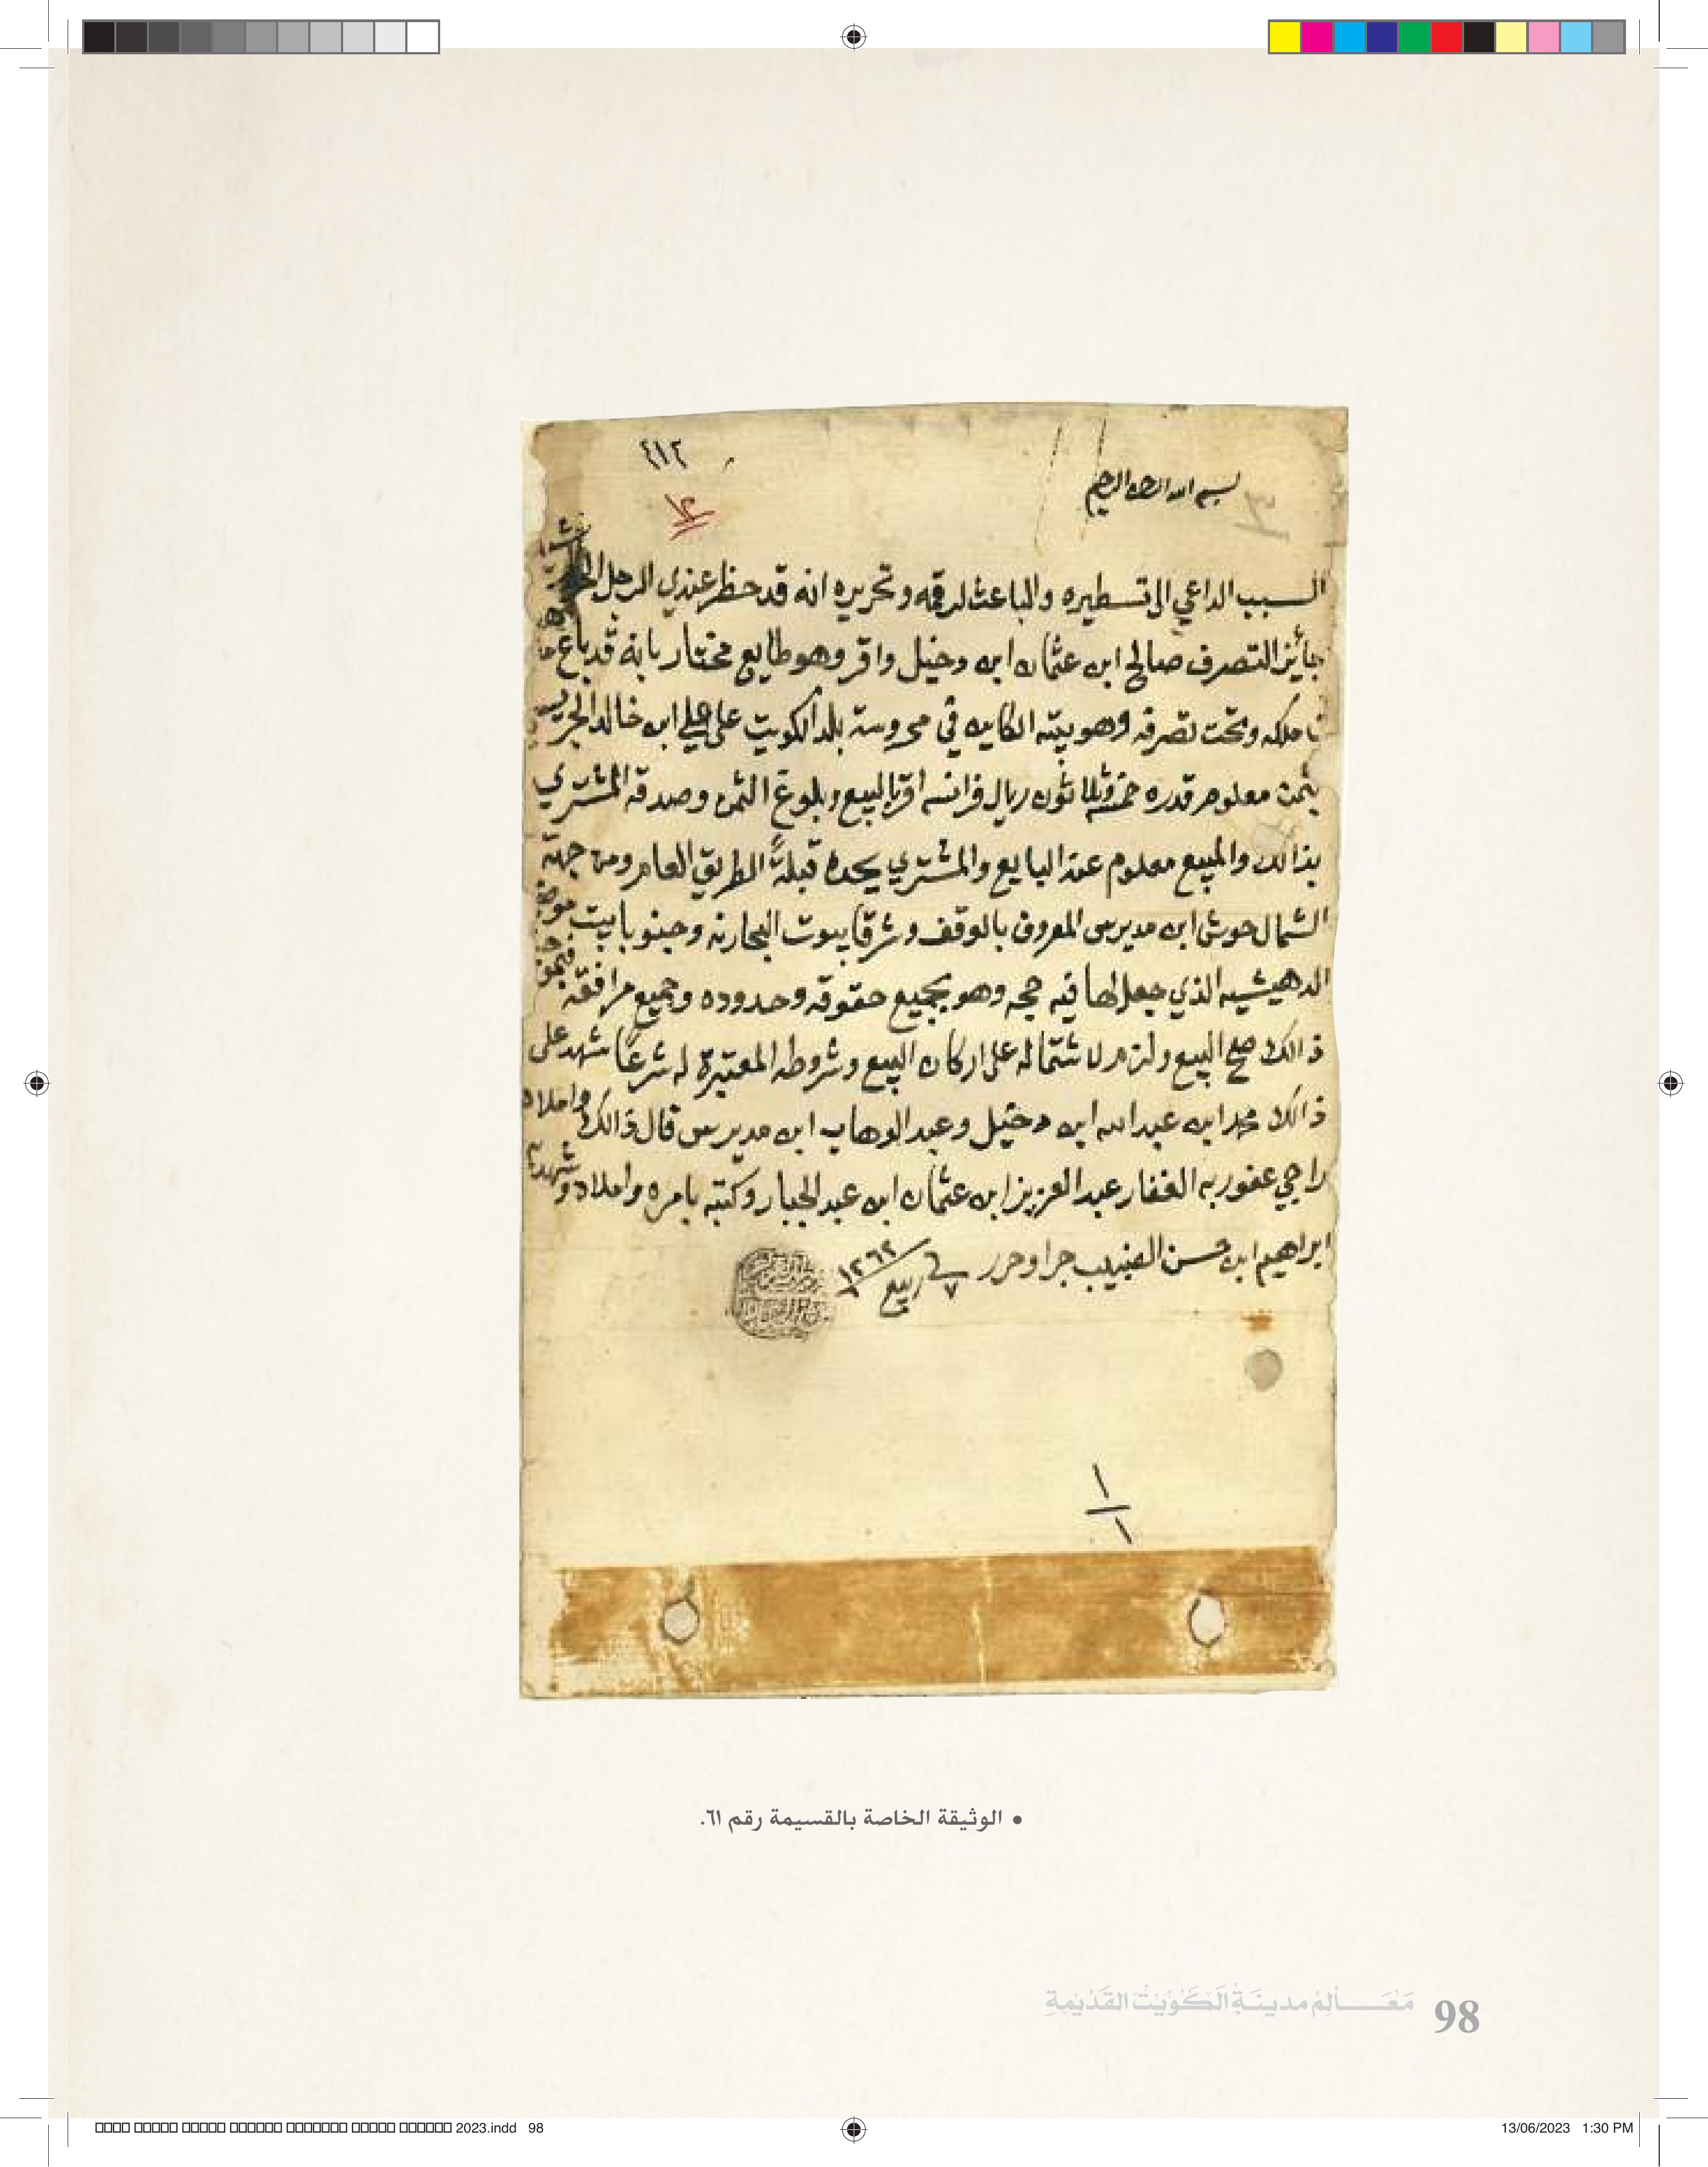 ٤١٢
١٢
٣
بسم الله الرحمن الرحيم
السبب الداعي الى تسطيره والباعث لرقمه وتحريره انه قد حظر عندي الرجل
جائز التصرف صالح ابن عثمان ابن دخيل واقر وهو طايع مختار بانه قد باع
ملكه وتحت تصرفه وهو بيته الكاين في محروسة بلد الكويت على علي ابن خالد
بثمن معلوم قدره خمسة وثلاثون ريال فرانسه اقر بالبيع وبلوغ الثمن وصدقه المشتري
بذالك والمبيع معلوم عند البايع والمشتري يحده قبلةً الطريق العام ومن جهة
الشمال حوش ابن مديرس المعروف بالوقف وشرقا بيوت البحارنه وجنوبا بيت موضي
الدهيشيه الذي جعل لها فيه حجه وهو بجميع حقوقه وحدوده وجميع مرافقه
ذالك صح البيع ولزم لاشتماله على اركان البيع وشروطه المعتبرة له شرعاً شهد على
ذالك محمد ابن عبدالله ابن دخيل وعبدالوهاب ابن مديرس قال ذالك واملاه
راجي عفو ربه الغفار عبدالعزيز ابن عثمان ابن عبدالجبار وكتبه بامره واملاه وشهد به
ابراهيم ابن حسن جرا وحرر في ٧ ربيع ١٢٦٢
١
١
• الوثيقة الخاصة بالقسيمة رقم ٦١.
مَعَالِمُ مدينَةِ الكُوَيْتِ القَدِيمَةِ 98
2023.indd 98
13/06/2023 1:30 PM